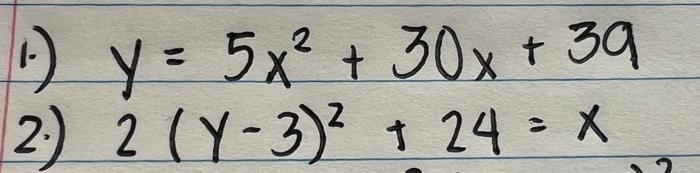 1.) y = 5x² + 30x + 39
2.) 2 (y - 3)² + 24 = x